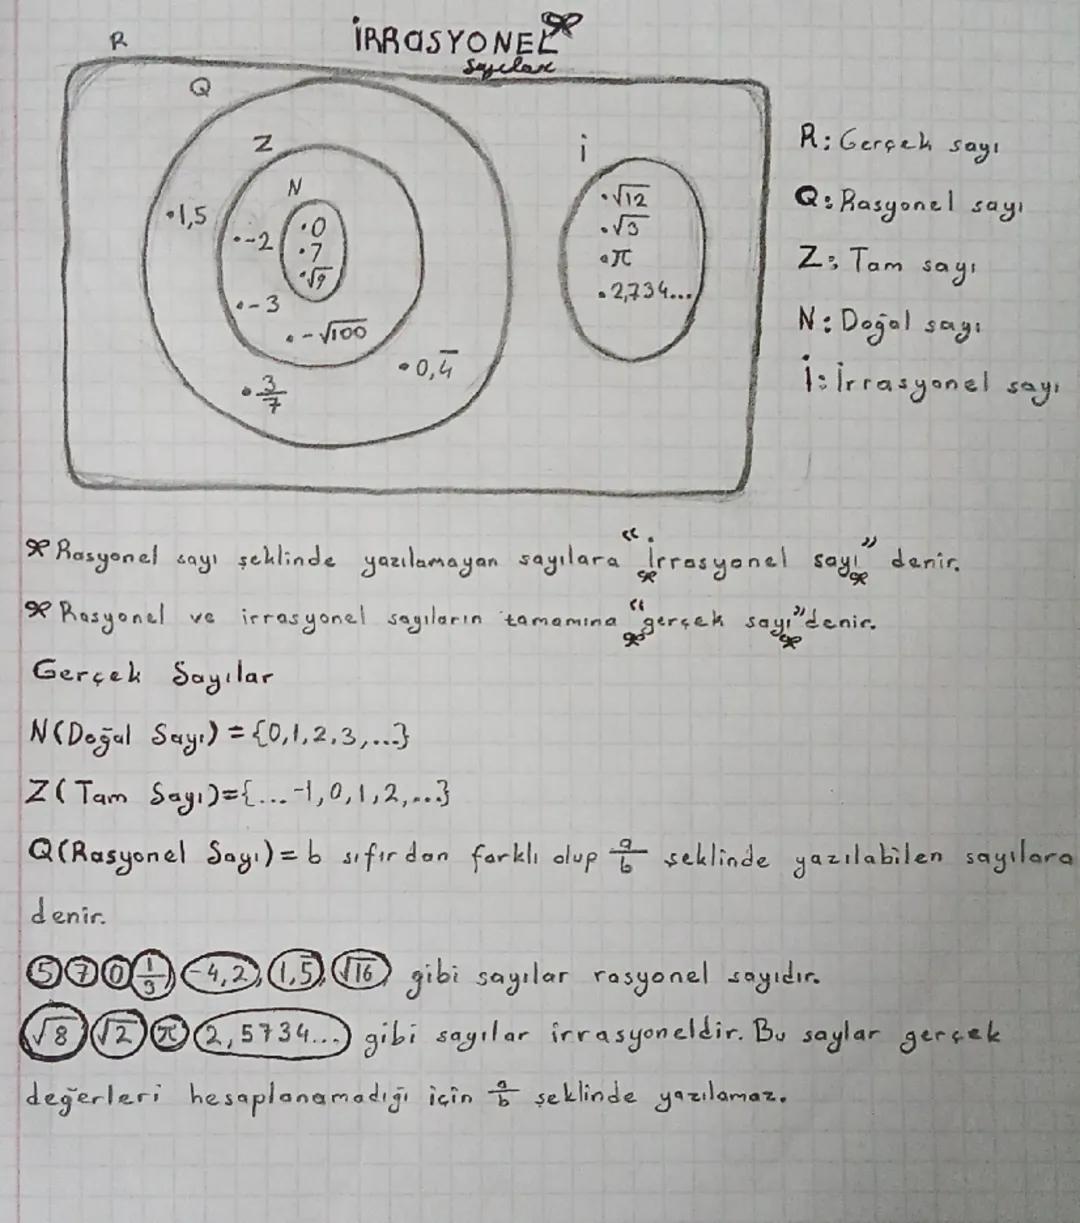 İRRASYONEL
Sayılar
R
Q
Z
N
i
•1,5
•-2
•0
•7
•√9
•-3
•-√100
•0,4̅
•3/7
•√12
•√3
•π
•2,734...
R: Gerçek sayı
Q: Rasyonel sayı
Z: Tam sayı
N: Doğal sayı
İ: İrrasyonel sayı
Rasyonel sayı şeklinde yazılamayan sayılara "İrrasyonel sayı" denir.
Rasyonel ve irrasyonel sayıların tamamına "gerçek sayı" denir.
Gerçek Sayılar
N(Doğal Sayı) = {0,1,2,3,...}
Z(Tam Sayı)={...-1,0,1,2,...}
Q(Rasyonel Sayı)= b sıfırdan farklı olup a/b şeklinde yazılabilen sayılara
denir.
5 7 0 1/9 -4,2, 1,5̅, √16 gibi sayılar rasyonel sayıdır.
√8 √2 π 2,5734... gibi sayılar irrasyoneldir. Bu saylar gerçek
değerleri hesaplanamadığı için a/b şeklinde yazılamaz.